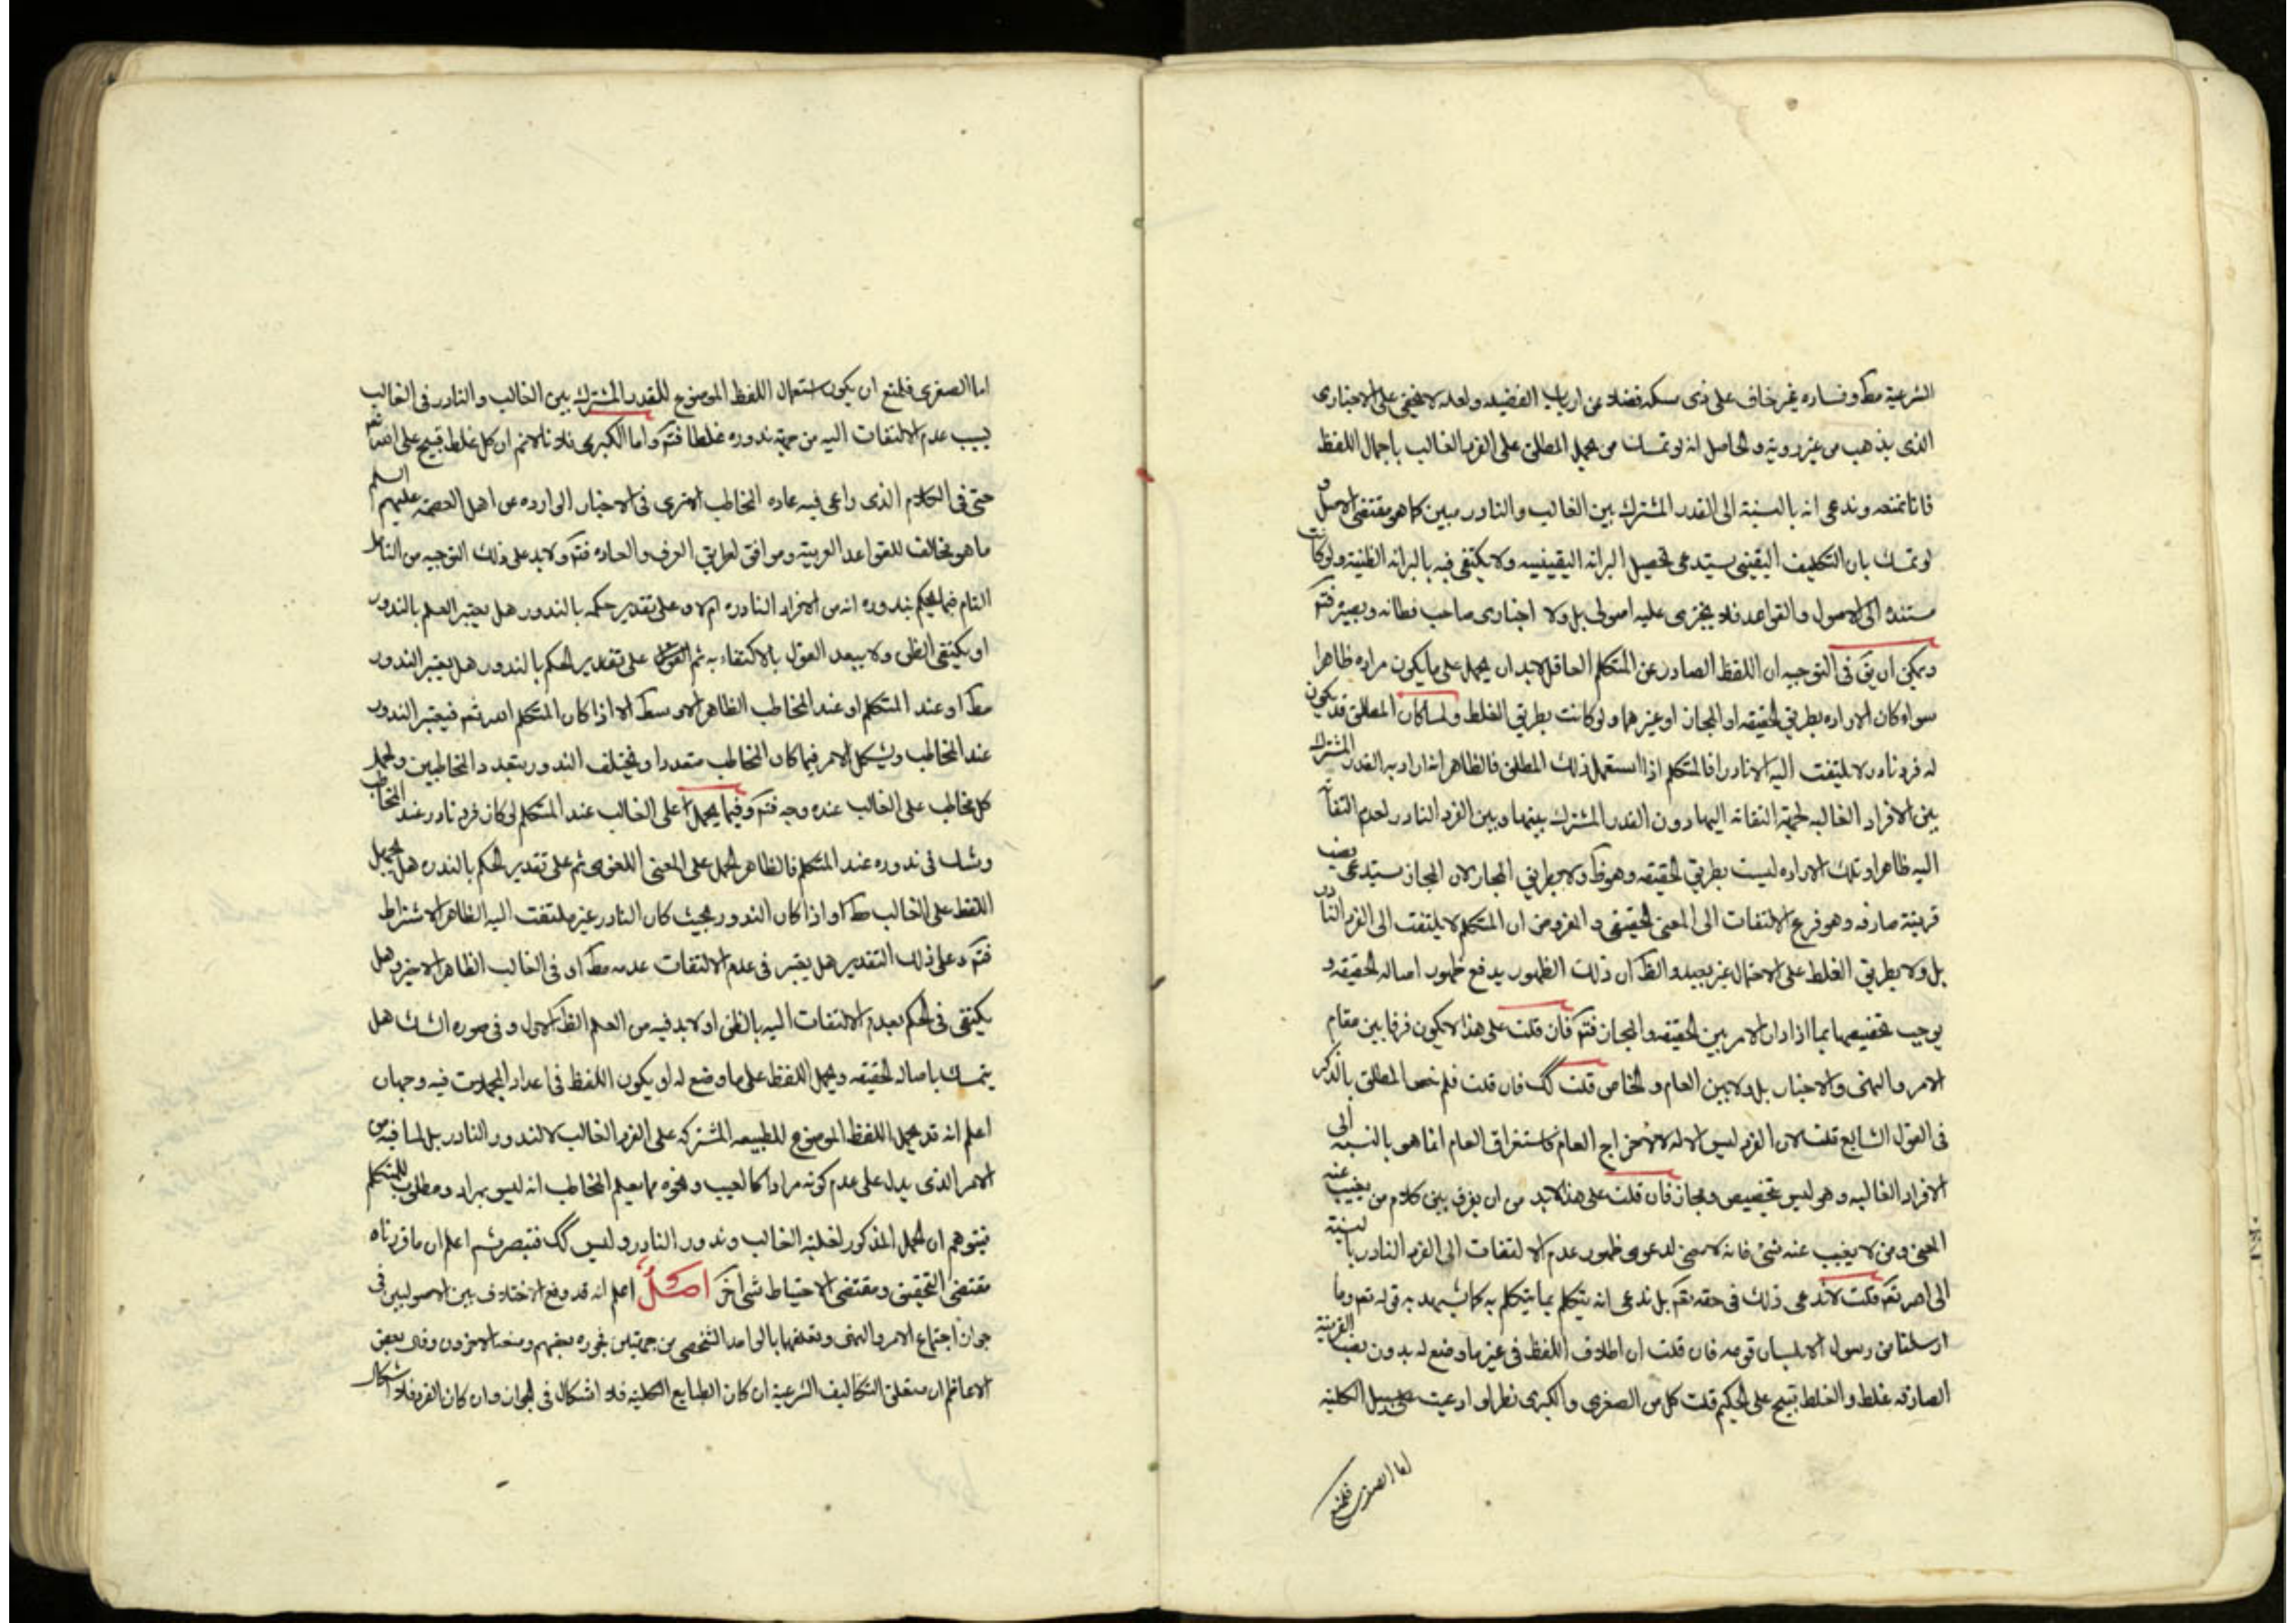 الشرعية مط وفساده غير خاف على ذى مسكه فضلا عن ارباب الفضيله ولعله لا يخفى على الاخبارى
الذى يذهب من غير روية والحاصل انه لو تمسك من يحمل المطلق على الفرد الغالب باجمال اللفظ
فانا نمنعه وندعى انه بالنسبة الى القدر المشترك بين الغالب والنادر مبين كما هو مقتضى الاصل و
لو تمسك بان التكليف اليقينى يستدعى تحصيل البرائه اليقينيه ولا يكتفى فيه بالبرائه الظنية ولو كانت
مستنده الى الاصول والقواعد فلا يجترى عليه اصولى بل ولا اخبارى صاحب فطانه وبصيرة فتم
ويمكن ان يق فى التوجيه ان اللفظ الصادر عن المتكلم العاقل لابد ان يحمل على ما يكون مراده ظاهرا
سواء كان الاراده بطريق الحقيقه او المجاز او غيرهما ولو كانت بطريق الغلط ولما كان المطلق قد يكون
له فرد نادر لا يلتفت اليه الا نادرا فالمتكلم اذا استعمل ذلك المطلق فالظاهر انه اراد به القدر المشترك
بين الافراد الغالبه لجهة التفاته اليها دون القدر المشترك بينها وبين الفرد النادر لعدم التفاته
اليه ظاهرا وتلك الاراده ليست بطريق الحقيقه وهو ظ ولا بطريق المجاز لان المجاز يستدعى نصب
قرينة صارفه وهو فرع الالتفات الى المعنى الحقيقى و المفروض ان المتكلم لا يلتفت الى الفرد النادر
بل ولا بطريق الغلط على الاحتمال غير بعيد والظ ان ذلك الظهور يدفع ظهور اصاله الحقيقه و
يوجب تخصيصها بما اذا دار الامر بين الحقيقه والمجاز فتم فان قلت على هذا لا يكون فرقا بين مقام
الامر والنهى والاخبار بل ولا بين العام والخاص قلت كك فان قلت فلم خص المطلق بالذكر
فى القول الشايع قلت لان الفرد ليس الا له لا لاخراج العام فاستغراق العام انما هو بالنسبه الى
الافراد الغالبه وهو ليس بتخصيص ومجاز فان قلت على هذا لابد من ان يفرق بين كلام من يغيب عنه
المعنى ومن لا يغيب عنه شئ فانه لا معنى لدعوى ظهور عدم الالتفات الى الفرد النادر بالنسبة
الى الله تعم قلت لا ندعى ذلك فى حقه تعم بل ندعى انه يتكلم بما يتكلم به كما يشهد به قوله تعم وما
ارسلنا من رسول الا بلسان قومه فان قلت ان اطلاق اللفظ فى غير ما وضع له بدون نصب القرينة
الصارفه غلط والغلط قبيح على الحكيم قلت كل من الصغرى والكبرى نظرا لو ادعيت على سبيل الكلية
اما الصغرى فلمنع
اما الصغرى فلمنع ان يكون استعمال اللفظ الموضوع للقدر المشترك بين الغالب والنادر فى الغالب
بسبب عدم الالتفات اليه من جهة ندوره غلطا فتم واما الكبرى فلانا لا نم ان كل غلط قبيح على الله تعم
حتى فى الكلام الذى راعى فيه عاده المخاطب الا ترى فى الاخبار الوارده عن اهل العصمة عليهم السلم
ما هو مخالف للقواعد العربية وموافق لطريق العرف والعاده فتم ولابد على ذلك التوجيه من التامل
التام فيما يحكم بندوره انه من الافراد النادره ام لا وعلى تقدير حكمه بالندور هل يعتبر العلم بالندور
او يكتفى الظن ولا يبعد القول بالاكتفاء به ثم القول على تقدير الحكم بالندور هل يعتبر الندور
مط او عند المتكلم او عند المخاطب الظاهر الاوسط الا اذا كان المتكلم الله تعم فيعتبر الندور
عند المخاطب ويشكل الامر فيما كان المخاطب متعددا ويختلف الندور بتعدد المخاطبين ولحمل
كل مخاطب على الغالب عنده وجه فتم وفيما يحمل على الغالب عند المتكلم لو كان فرد نادر عند المخاطب
وشك فى ندوره عند المتكلم فالظاهر الحمل على المعنى اللغوى ثم على تقدير الحكم بالندره هل يحمل
اللفظ على الغالب مط او اذا كان الندور بحيث كان النادر غير ملتفت اليه الظاهر الاشتراط
فتم وعلى ذلك التقدير هل يعتبر فى عدم الالتفات عدمه مط او فى الغالب الظاهر الاخير وهل
يكتفى فى الحكم بعدم الالتفات اليه بالظن او لابد فيه من العلم الظ الاول وفى صوره الشك هل
يتمسك باصاله الحقيقه ويحمل اللفظ على ما وضع له او يكون اللفظ فى اعداد المجملات فيه وجهان
اعلم انه قد يحمل اللفظ الموضوع للطبيعه المشتركه على الفرد الغالب لا لندور النادر بل لما فيه من
الامر الذى يدل على عدم كونه مرادا كالعيب ونحوه مما يعلم المخاطب انه ليس بمراد ومطلوب للمتكلم
فيتوهم ان الحمل المذكور لغلبة الغالب وندور النادر وليس كك فتبصر ثم اعلم ان ما قررناه
مقتضى التحقيق ومقتضى الاحتياط شئ آخر اصل اعلم انه قد وقع الاختلاف بين الاصوليين فى
جواز اجتماع الامر والنهى وتعلقهما بالواحد الشخصى من جهتين فجوزه بعضهم ومنعه الاخرون وقال بعض
الاعاظم ان متعلق التكاليف الشرعية ان كان الطبايع الكلية فلا اشكال فى الجواز وان كان الفرد فلا اشكال